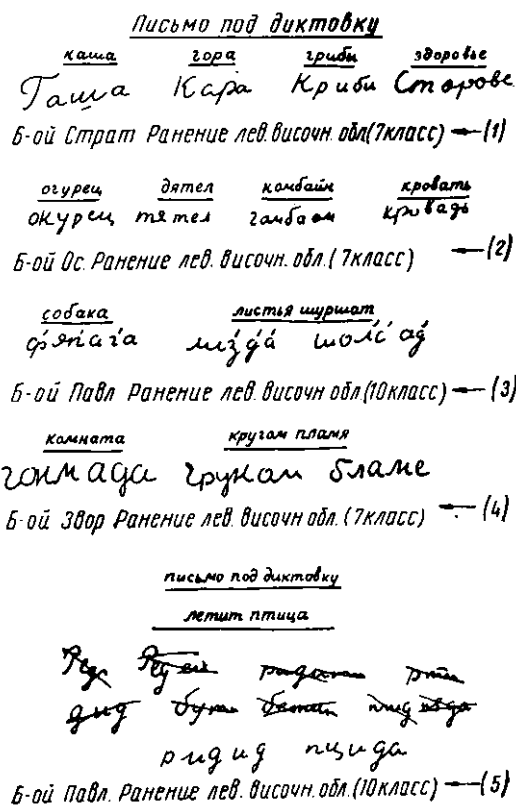 Письмо под диктовку
каша гора грибы здоровье
Гаша Кара Криби Сторове
Б-ой Страт Ранение лев. височн. обл(7класс) ← (1)
огурец дятел комбайн кровать
окурец тятел гамбаом кровадь
Б-ой Ос. Ранение лев. височн. обл. (7класс) ← (2)
собака листья шуршат
фяпага лизда шолс ад
Б-ой Павл Ранение лев. височн обл.(10класс) ← (3)
комната кругом пламя
гонмада грукам бламе
Б-ой Звор Ранение лев. височн обл. (7класс) ← (4)
письмо под диктовку
летит птица
дид
ридид пцида
Б-ой Павл. Ранение лев. височн. обл.(10класс) ← (5)